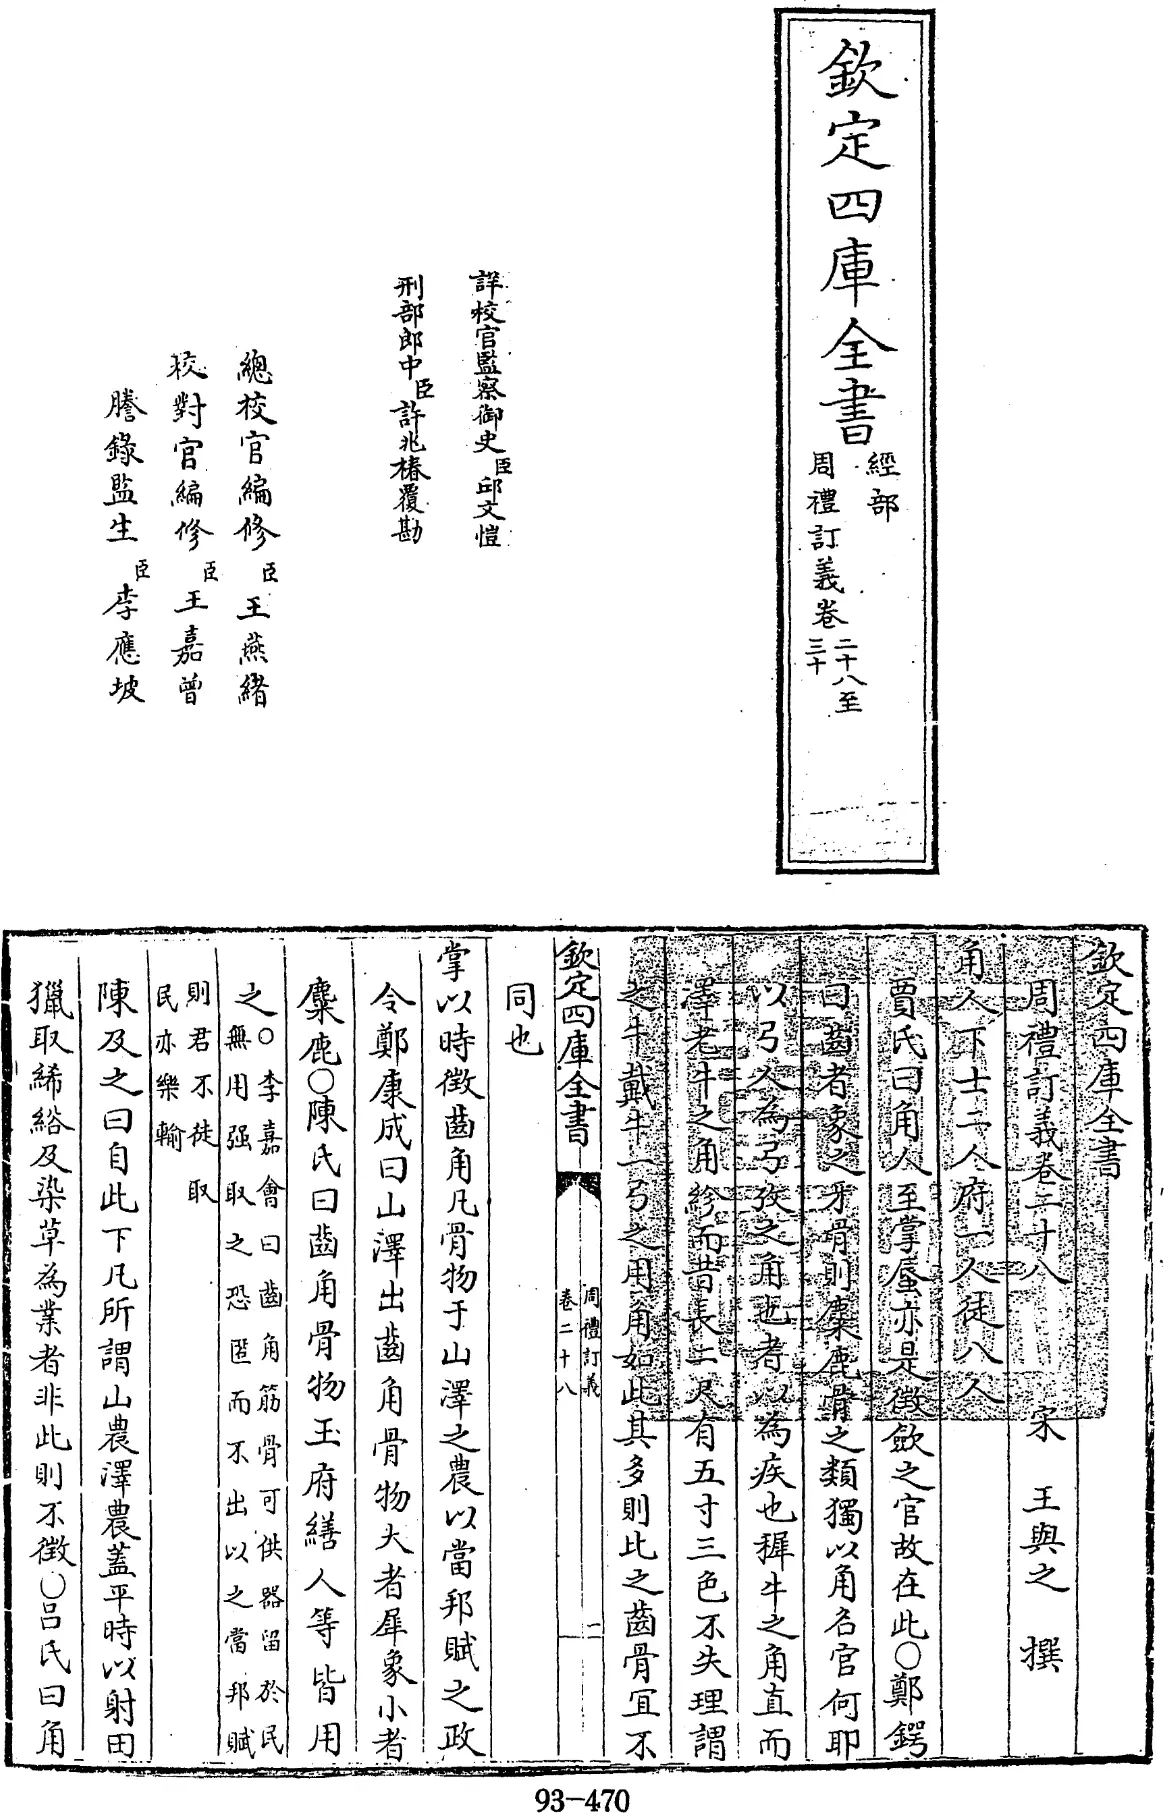 欽定四庫全書
經部
周禮訂義卷
二十八至
三十
詳校官監察御史臣邱文愷
刑部郎中臣許兆椿覆勘
總校官編修臣王燕緒
校對官編修臣王嘉曾
謄錄監生臣李應坡
欽定四庫全書
周禮訂義卷二十八
宋 王與之 撰
角人下士二人府一人徒八人
賈氏曰角人至掌蜃亦是徵斂之官故在此○鄭鍔
曰齒者象之牙骨則麋鹿骨之類獨以角名官何耶
以弓人為弓攷之角也者以為疾也穉牛之角直而
澤老牛之角紾而昔長二尺有五寸三色不失理謂
之牛戴牛一弓之用角如此其多則比之齒骨宜不
欽定四庫全書
周禮訂義
卷二十八
二
同也
掌以時徵齒角凡骨物于山澤之農以當邦賦之政
令鄭康成曰山澤出齒角骨物大者犀象小者
麋鹿○陳氏曰齒角骨物玉府繕人等皆用
之○李嘉會曰齒角筋骨可供器留於民
無用强取之恐匿而不出以之當邦賦
則君不徒取
民亦樂輸
陳及之曰自此下凡所謂山農澤農蓋平時以射田
獵取絺綌及染草為業者非此則不徵○呂氏曰角
93-470